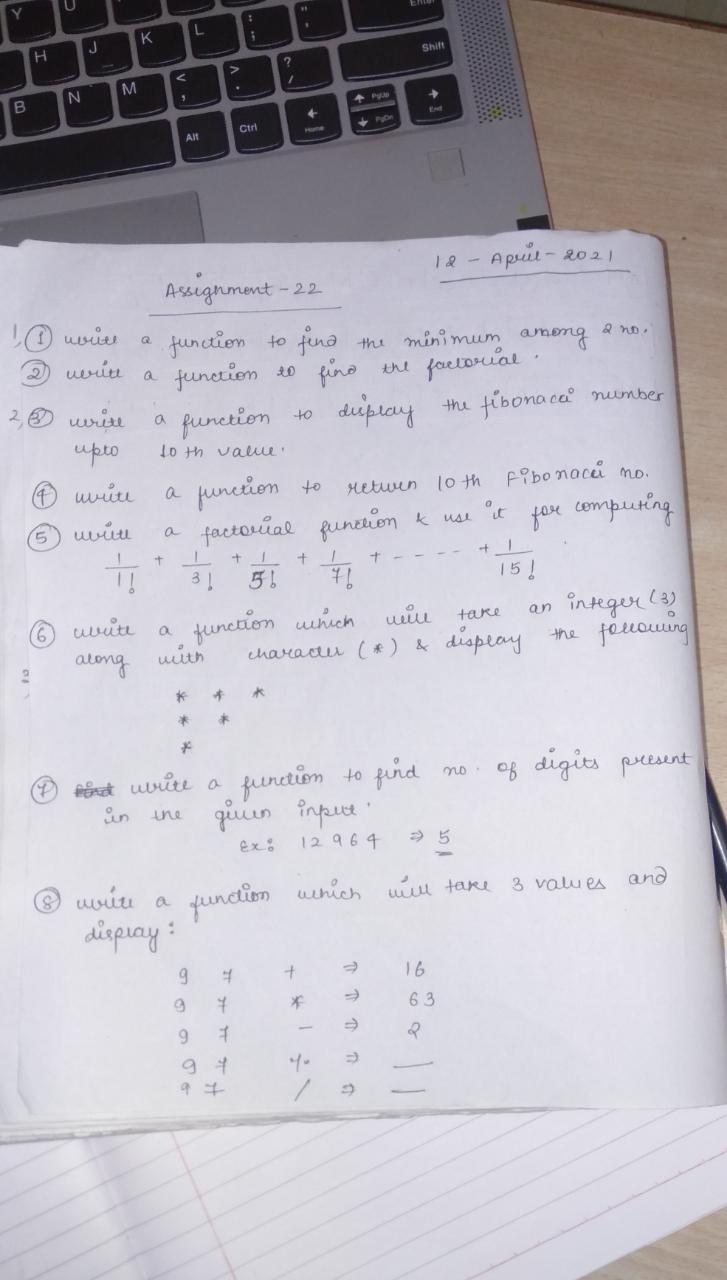 Y
U
Enter
H
J
K
L
: ;
" '
Shift
B
N
M
< ,
> .
? /
Alt
Ctrl
← Home
↑ PgUp
↓ PgDn
→ End
12 - April - 2021
Assignment - 22
1, ① write a function to find the minimum among 2 no.
② write a function to find the factorial.
2, ③ write a function to display the fibonacci number
upto 10th value.
④ write a function to return 10th Fibonacci no.
⑤ write a factorial function & use it for computing
1/1! + 1/3! + 1/5! + 1/7! + - - - - + 1/15!
⑥ write a function which will take an integer (3)
along with character (*) & display the following
3,
* * *
* *
*
⑦ write a function to find no. of digits present
in the given input.
Ex: 12964 ⇒ 5
⑧ write a function which will take 3 values and
display:
9 7 + ⇒ 16
9 7 * ⇒ 63
9 7 - ⇒ 2
9 7 % ⇒ __
9 7 / ⇒ __